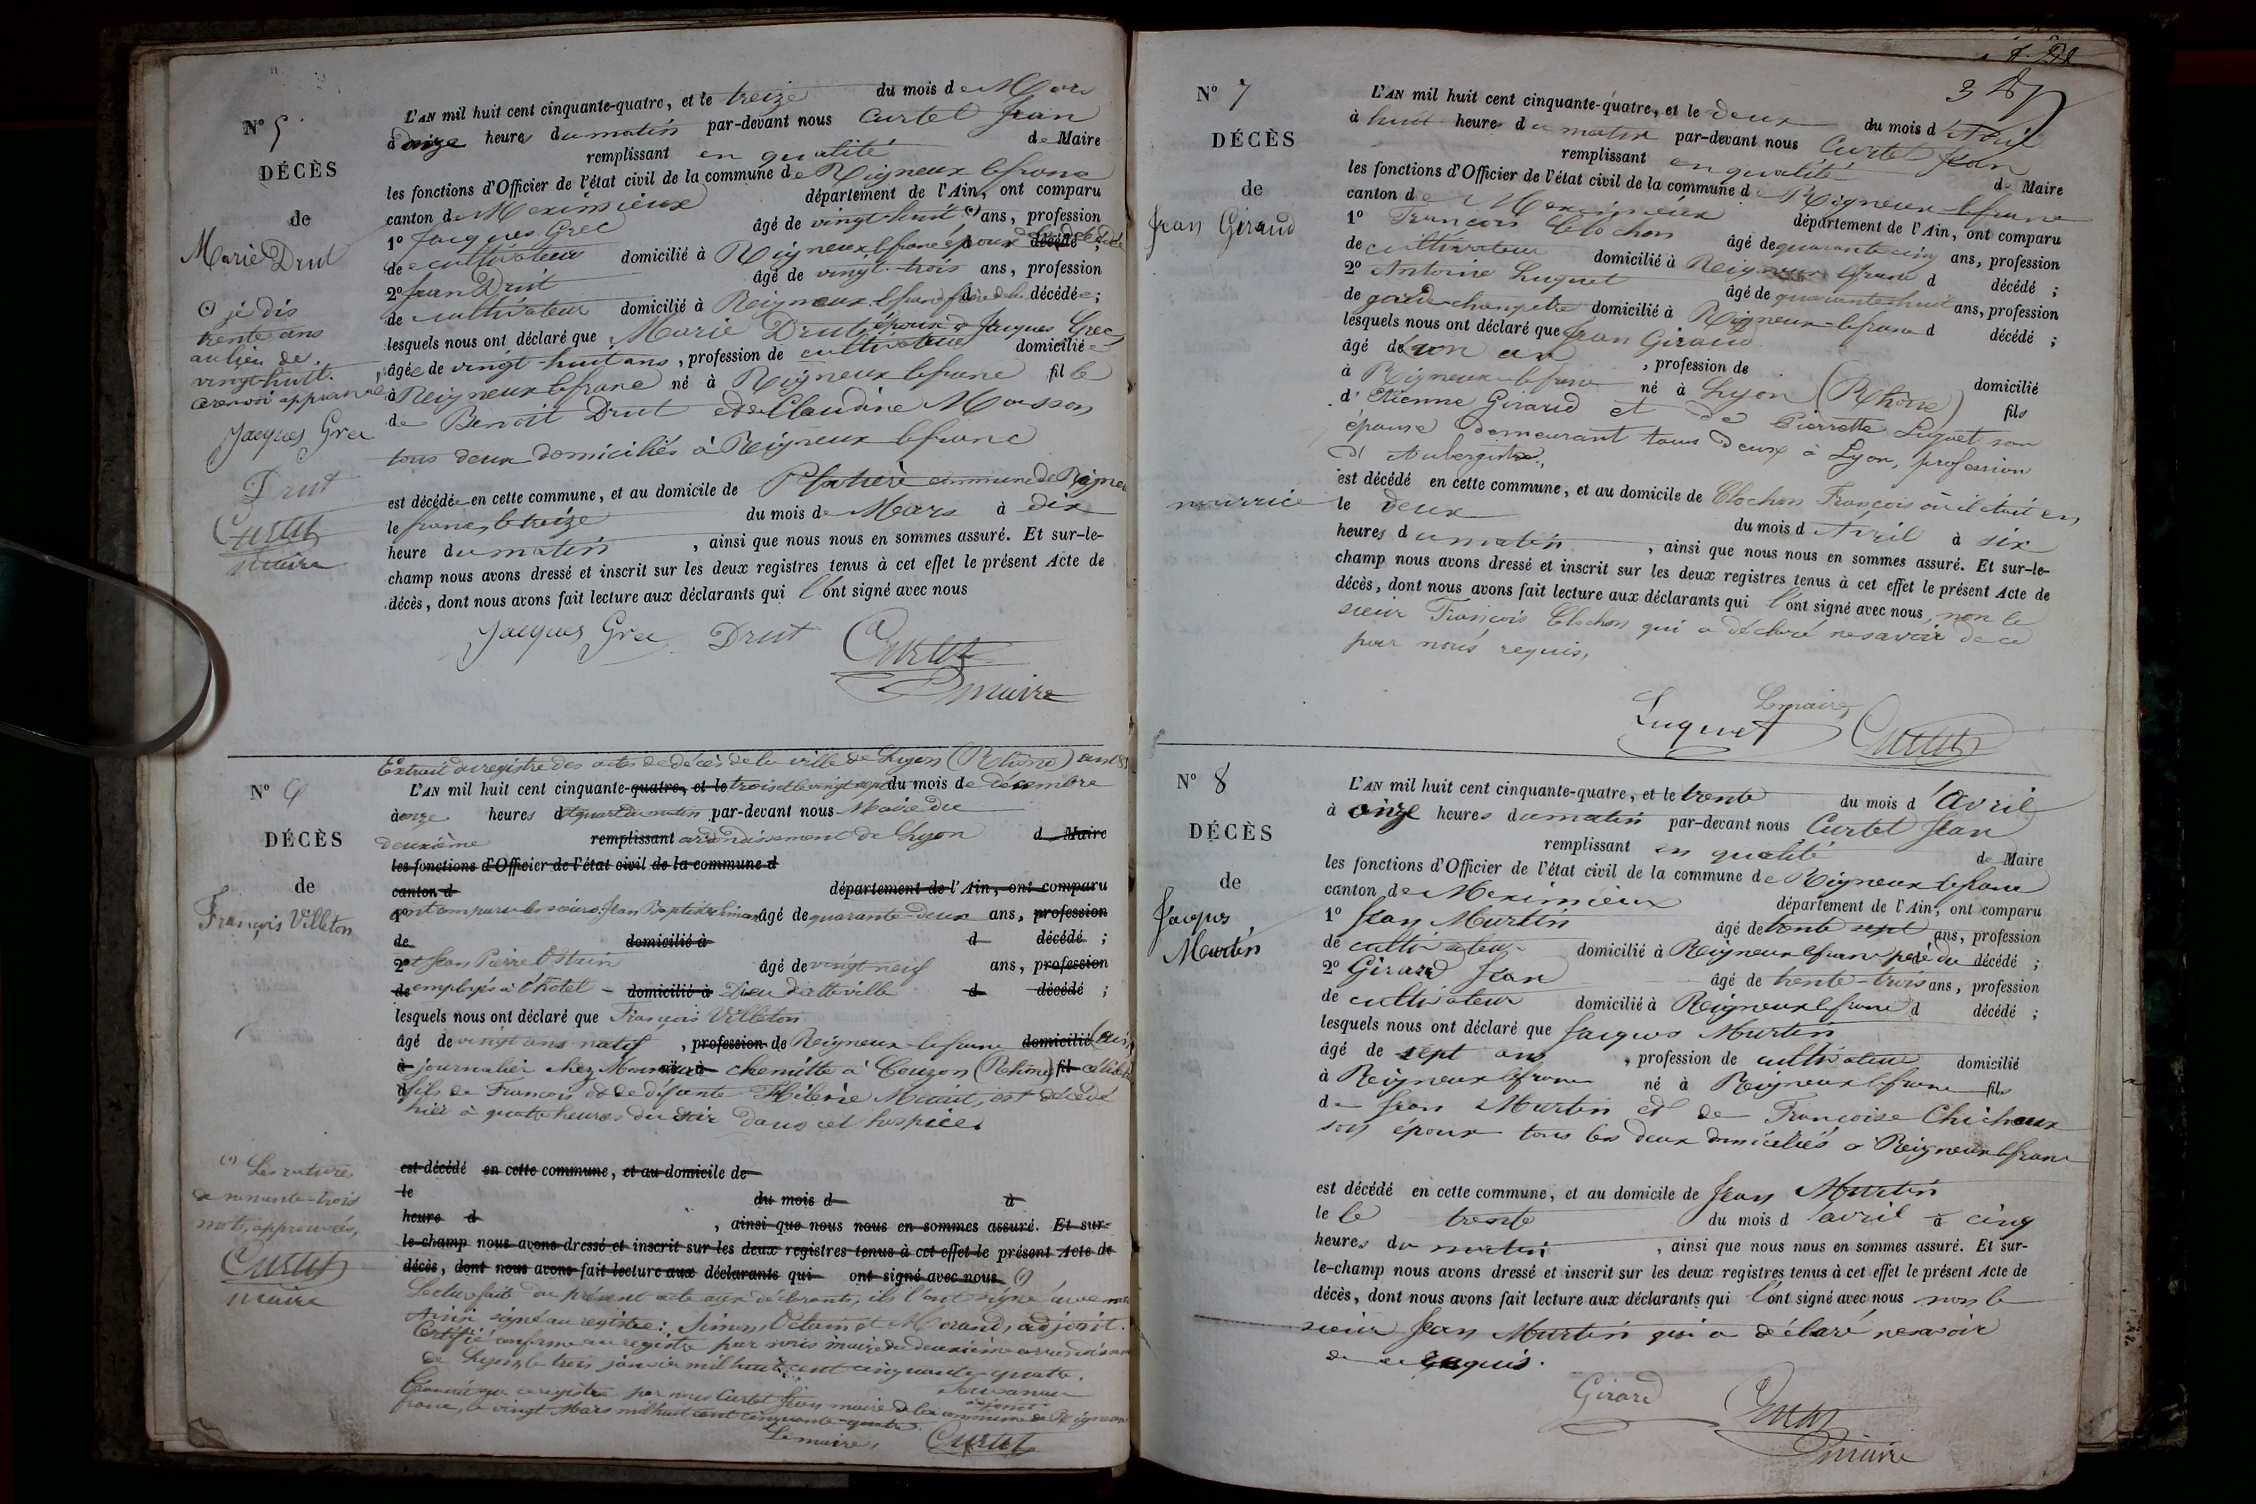 N° 5
DÉCÈS
de
Marie Drut
je dis
trente ans
au lieu de
vingt-huit.
Jacques Grec
Drut
Curtet
maire
L'AN mil huit cent cinquante-quatre, et le treize du mois de Mars
à onze heures du matin par-devant nous Curtet Jean
remplissant en qualité de Maire
les fonctions d'Officier de l'état civil de la commune de Rigneux le franc
canton de Meximieux département de l'Ain, ont comparu
1° Jacques Grec âgé de vingt-huit ans, profession
de cultivateur domicilié à Rigneux le franc époux décédé ;
2° Jean Drut âgé de vingt-trois ans, profession
de cultivateur domicilié à Reigneux le franc frère de la décédée ;
lesquels nous ont déclaré que Marie Drut, épouse d Jacques Grec
âgée de vingt-huit ans, profession de cultivateur domiciliée
à Reigneux le franc né à Reigneux le franc fille
de Benoit Drut et de Claudine Mousson
tous deux domiciliés à Reigneux le franc
est décédée en cette commune, et au domicile de Platière commune de Rigneux
le franc, le treize du mois de Mars à dix
heure du matin, ainsi que nous nous en sommes assuré. Et sur-le-
champ nous avons dressé et inscrit sur les deux registres tenus à cet effet le présent Acte de
décès, dont nous avons fait lecture aux déclarants qui l'ont signé avec nous
Jacques Grec Drut Curtet
maire
N° 6
DÉCÈS
de
François Villeton
Les ratures
de nonante-trois
mots, approuvées,
Curtet
maire
Extrait du registre des actes de décès de la ville de Lyon (Rhône)
L'AN mil huit cent cinquante-quatre, et le trois et le vingt sept du mois de décembre
à onze heures et quart du matin par-devant nous Maire du
deuxième remplissant arrondissement de Lyon d Maire
les fonctions d'Officier de l'état civil de la commune d
canton d département de l'Ain, ont comparu
1° ont comparu les sieurs Jean Baptiste Simon âgé de quarante-deux ans, profession
de domicilié à d décédé ;
2° et Jean Pierre Octain âgé de vingt neuf ans, profession
de employés à l'hôtel - domicilié à Dieu de cette ville d décédé ;
lesquels nous ont déclaré que François Villeton
âgé de vingt ans natif, profession de Reigneux-le franc domicilié (Ain)
à journalier chez né à chemille à Couzon (Rhône) fil célibataire
d fils de François et de défunte Hélène Micaut, est décédé
hier à quatre heures du soir dans cet hospice.
est décédé en cette commune, et au domicile de
le du mois d à
heure d, ainsi que nous nous en sommes assuré. Et sur-
le-champ nous avons dressé et inscrit sur les deux registres tenus à cet effet le présent Acte de
décès, dont nous avons fait lecture aux déclarants qui ont signé avec nous
Lecture faite du présent acte aux déclarants, ils l'ont signé avec nous
Ainsi signé au registre : Simon, Octain et Morand, adjoint.
Certifié conforme au registre par nous maire du deuxième arrondissement
de Lyon, le trois janvier mil huit cent cinquante quatre.
par nous Curtet Jean maire de la commune de Rigneux
franc, le vingt Mars mil huit cent cinquante-quatre
Le maire, Curtet
387
N° 7
DÉCÈS
de
Jean Giraud
L'AN mil huit cent cinquante-quatre, et le deux du mois d'Avril
à huit heures du matin par-devant nous Curtet Jean
remplissant en qualité de Maire
les fonctions d'Officier de l'état civil de la commune de Rigneux le franc
canton de Meximieux département de l'Ain, ont comparu
1° François Clochon âgé de quarante cinq ans, profession
de cultivateur domicilié à Reigneux le franc d décédé ;
2° Antoine Luguet âgé de quarante-huit ans, profession
de garde champêtre domicilié à Rigneux-le franc d décédé ;
lesquels nous ont déclaré que Jean Giraud
âgé de un an, profession de domicilié
à Rigneux-le franc né à Lyon (Rhône) fils
d'Etienne Giraud et de Pierrette Luguet son
épouse demeurant tous deux à Lyon, profession
d'Aubergiste,
est décédé en cette commune, et au domicile de Clochon François où il était en
nourrice le deux du mois d'Avril à six
heures du matin, ainsi que nous nous en sommes assuré. Et sur-le-
champ nous avons dressé et inscrit sur les deux registres tenus à cet effet le présent Acte de
décès, dont nous avons fait lecture aux déclarants qui l'ont signé avec nous, non le
sieur François Clochon qui a déclaré ne savoir de ce
par nous requis,
Le maire,
Luguet Curtet
N° 8
DÉCÈS
de
Jacques
Murtin
L'AN mil huit cent cinquante-quatre, et le trente du mois d'avril
à onze heures du matin par-devant nous Curtet Jean
remplissant en qualité de Maire
les fonctions d'Officier de l'état civil de la commune de Rigneux le franc
canton de Meximieux département de l'Ain, ont comparu
1° Jean Murtin âgé de trente sept ans, profession
de cultivateur domicilié à Reigneux le franc père du décédé ;
2° Girard Jean âgé de trente-trois ans, profession
de cultivateur domicilié à Reigneux le franc d décédé ;
lesquels nous ont déclaré que Jacques Murtin
âgé de sept ans, profession de cultivateur domicilié
à Reigneux le franc né à Reigneux le franc fils
de Jean Murtin et de Françoise Chichoux
son époux tous les deux domiciliés à Reigneux le franc
est décédé en cette commune, et au domicile de Jean Murtin
le le trente du mois d'avril à cinq
heures du matin, ainsi que nous nous en sommes assuré. Et sur-
le-champ nous avons dressé et inscrit sur les deux registres tenus à cet effet le présent Acte de
décès, dont nous avons fait lecture aux déclarants qui l'ont signé avec nous non le
sieur Jean Murtin qui a déclaré ne savoir
de ce requis.
Girard Curtet
maire